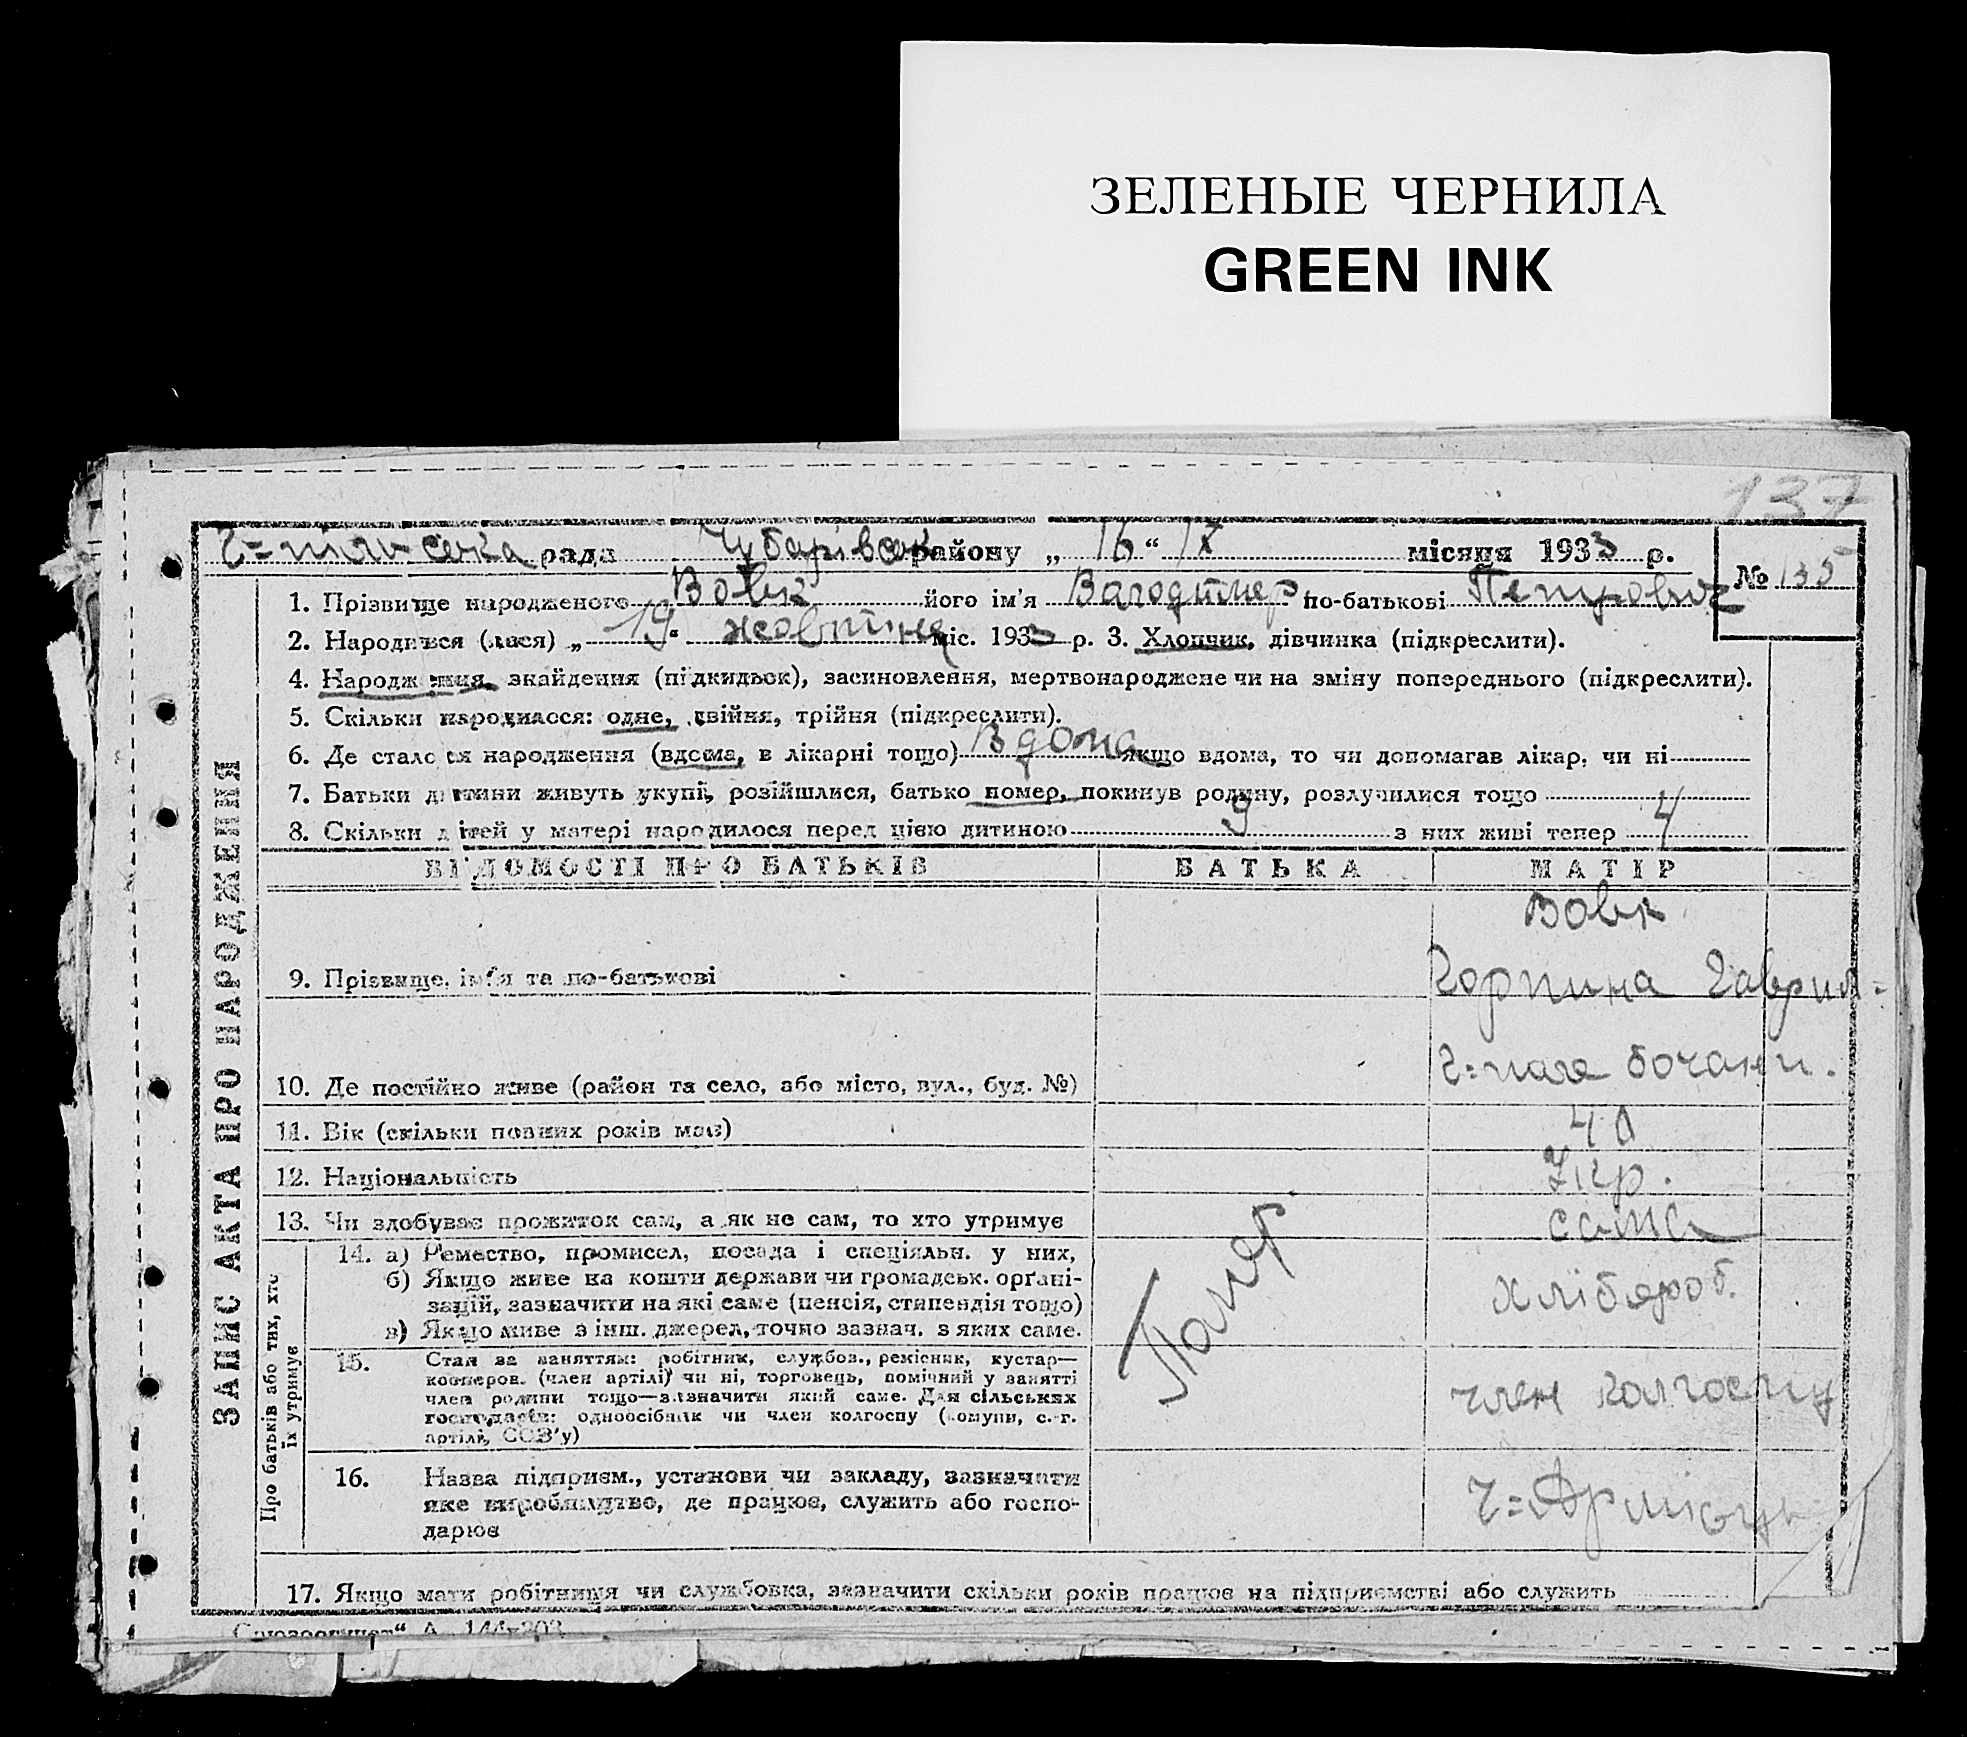 ЗЕЛЕНЫЕ ЧЕРНИЛА
GREEN INK
137
рада Чубарівськ району „ 16 “ IX місяця 1933 р.
№ 135
1. Прізвище народженого Вовк його ім'я Вагодтмер по-батькові Петрович
2. Народився (лася) „ 19 “ жовтня міс. 1933 р. 3. Хлопчик, дівчинка (підкреслити).
4. Народження, знайдення (підкидьок), засиновлення, мертвонароджене чи на зміну попереднього (підкреслити).
5. Скільки народилося: одне, двійня, трійня (підкреслити).
6. Де сталося народження (вдома, в лікарні тощо) Вдома якщо вдома, то чи допомагав лікар, чи ні
7. Батьки дитини живуть укупі, розійшлися, батько помер, покинув родину, розлучилися тощо
8. Скільки дітей у матері народилося перед цією дитиною 9 з них живі тепер 4
ЗАПИС АКТА ПРО НАРОДЖЕННЯ
ВІДОМОСТІ ПРО БАТЬКІВ БАТЬКА МАТІР
Вовк
9. Прізвище, ім'я та по-батькові Горпина Гаврил=
10. Де постійно живе (район та село, або місто, вул., буд. №)
11. Вік (скільки повних років має) 40
12. Національність Укр.
13. Чи здобуває прожиток сам, а як не сам, то хто утримує сама
Про батьків або тих, хто
їх утримує
14. а) Ремество, промисел, посада і спеціяльн. у них,
б) Якщо живе на кошти держави чи громадськ. орґані-
зацій, зазначити на які саме (пенсія, стипендія тощо)
в) Якщо живе з інш. джерел, точно зазнач. з яких саме.
Хлібороб.
Помер
15. Стан за заняттям: робітник, службов., ремісник, кустар—
кооперов. (член артілі) чи ні, торговець, помічний у занятті
член родини тощо—зазначити який саме. Для сільських
господарів: одноосібник чи член колгоспу (комуни, с.-г.
артілі, СОЗ'у)
член колгоспу
16. Назва підприєм., установи чи закладу, зазначити
яке виробництво, де працює, служить або госпо-
дарює
17. Якщо мати робітниця чи службовка, зазначити скільки років працює на підприємстві або служить